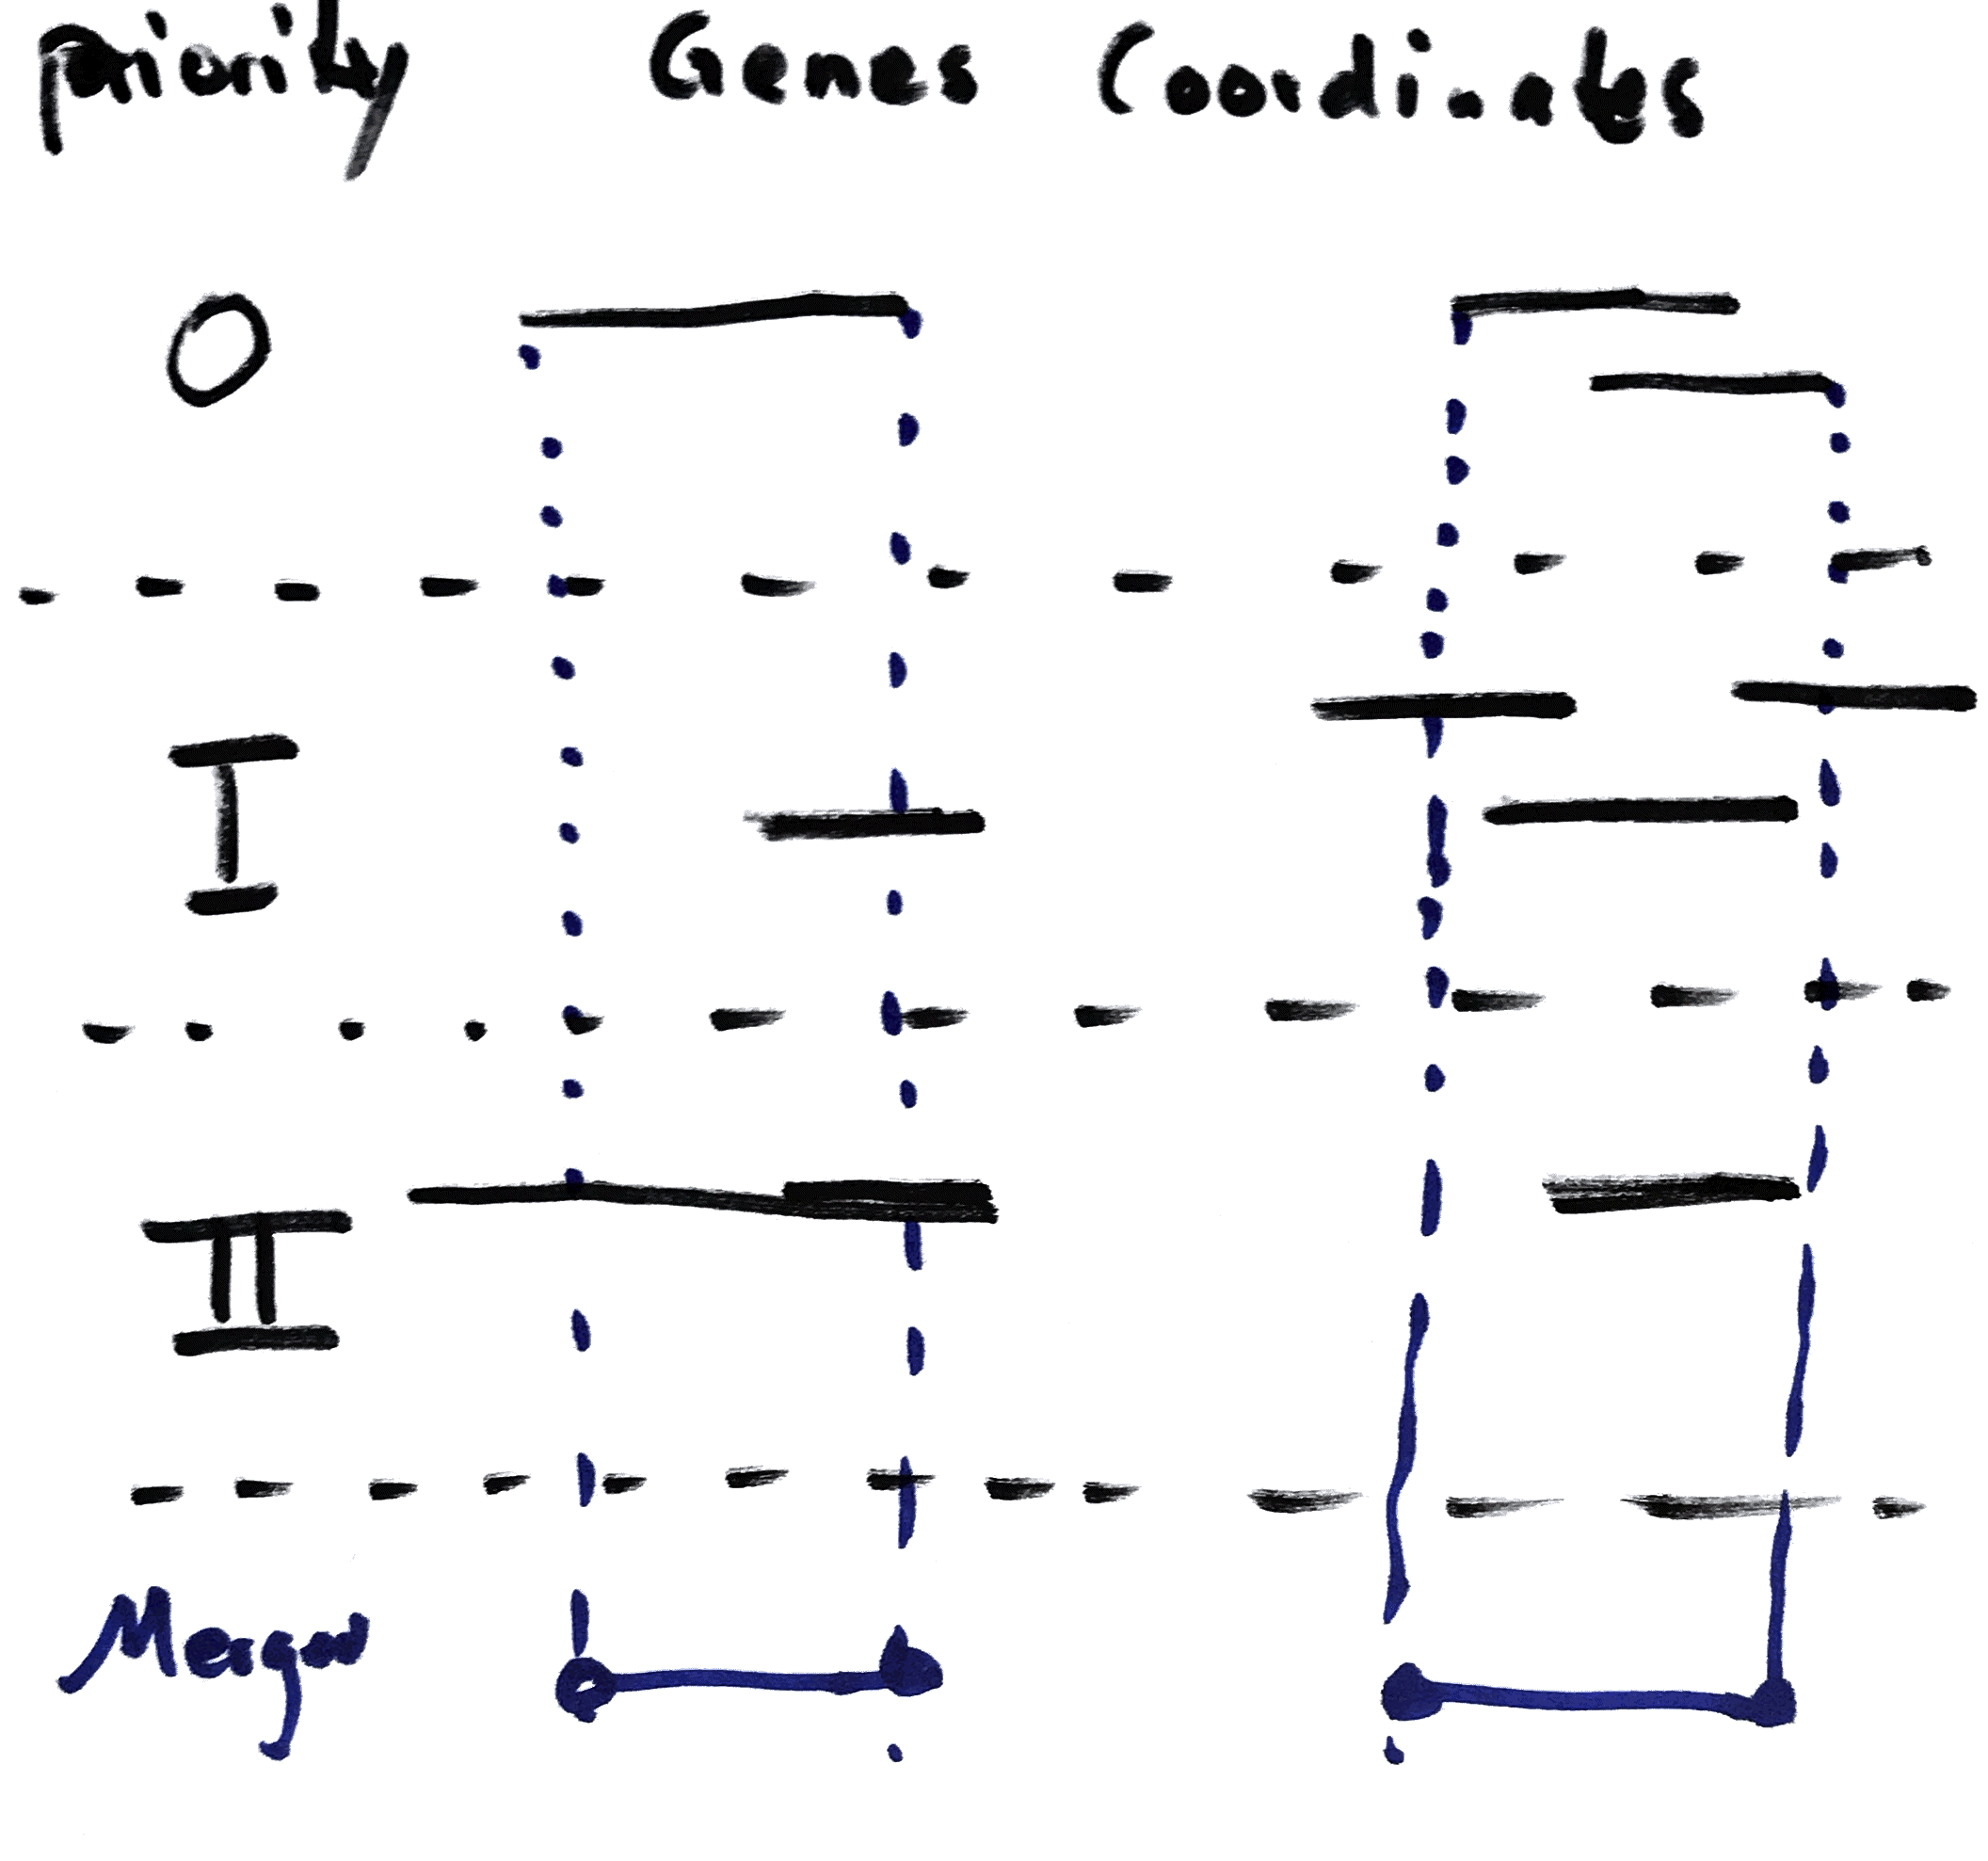 Priority Genes Coordinates
O
I
II
Merged